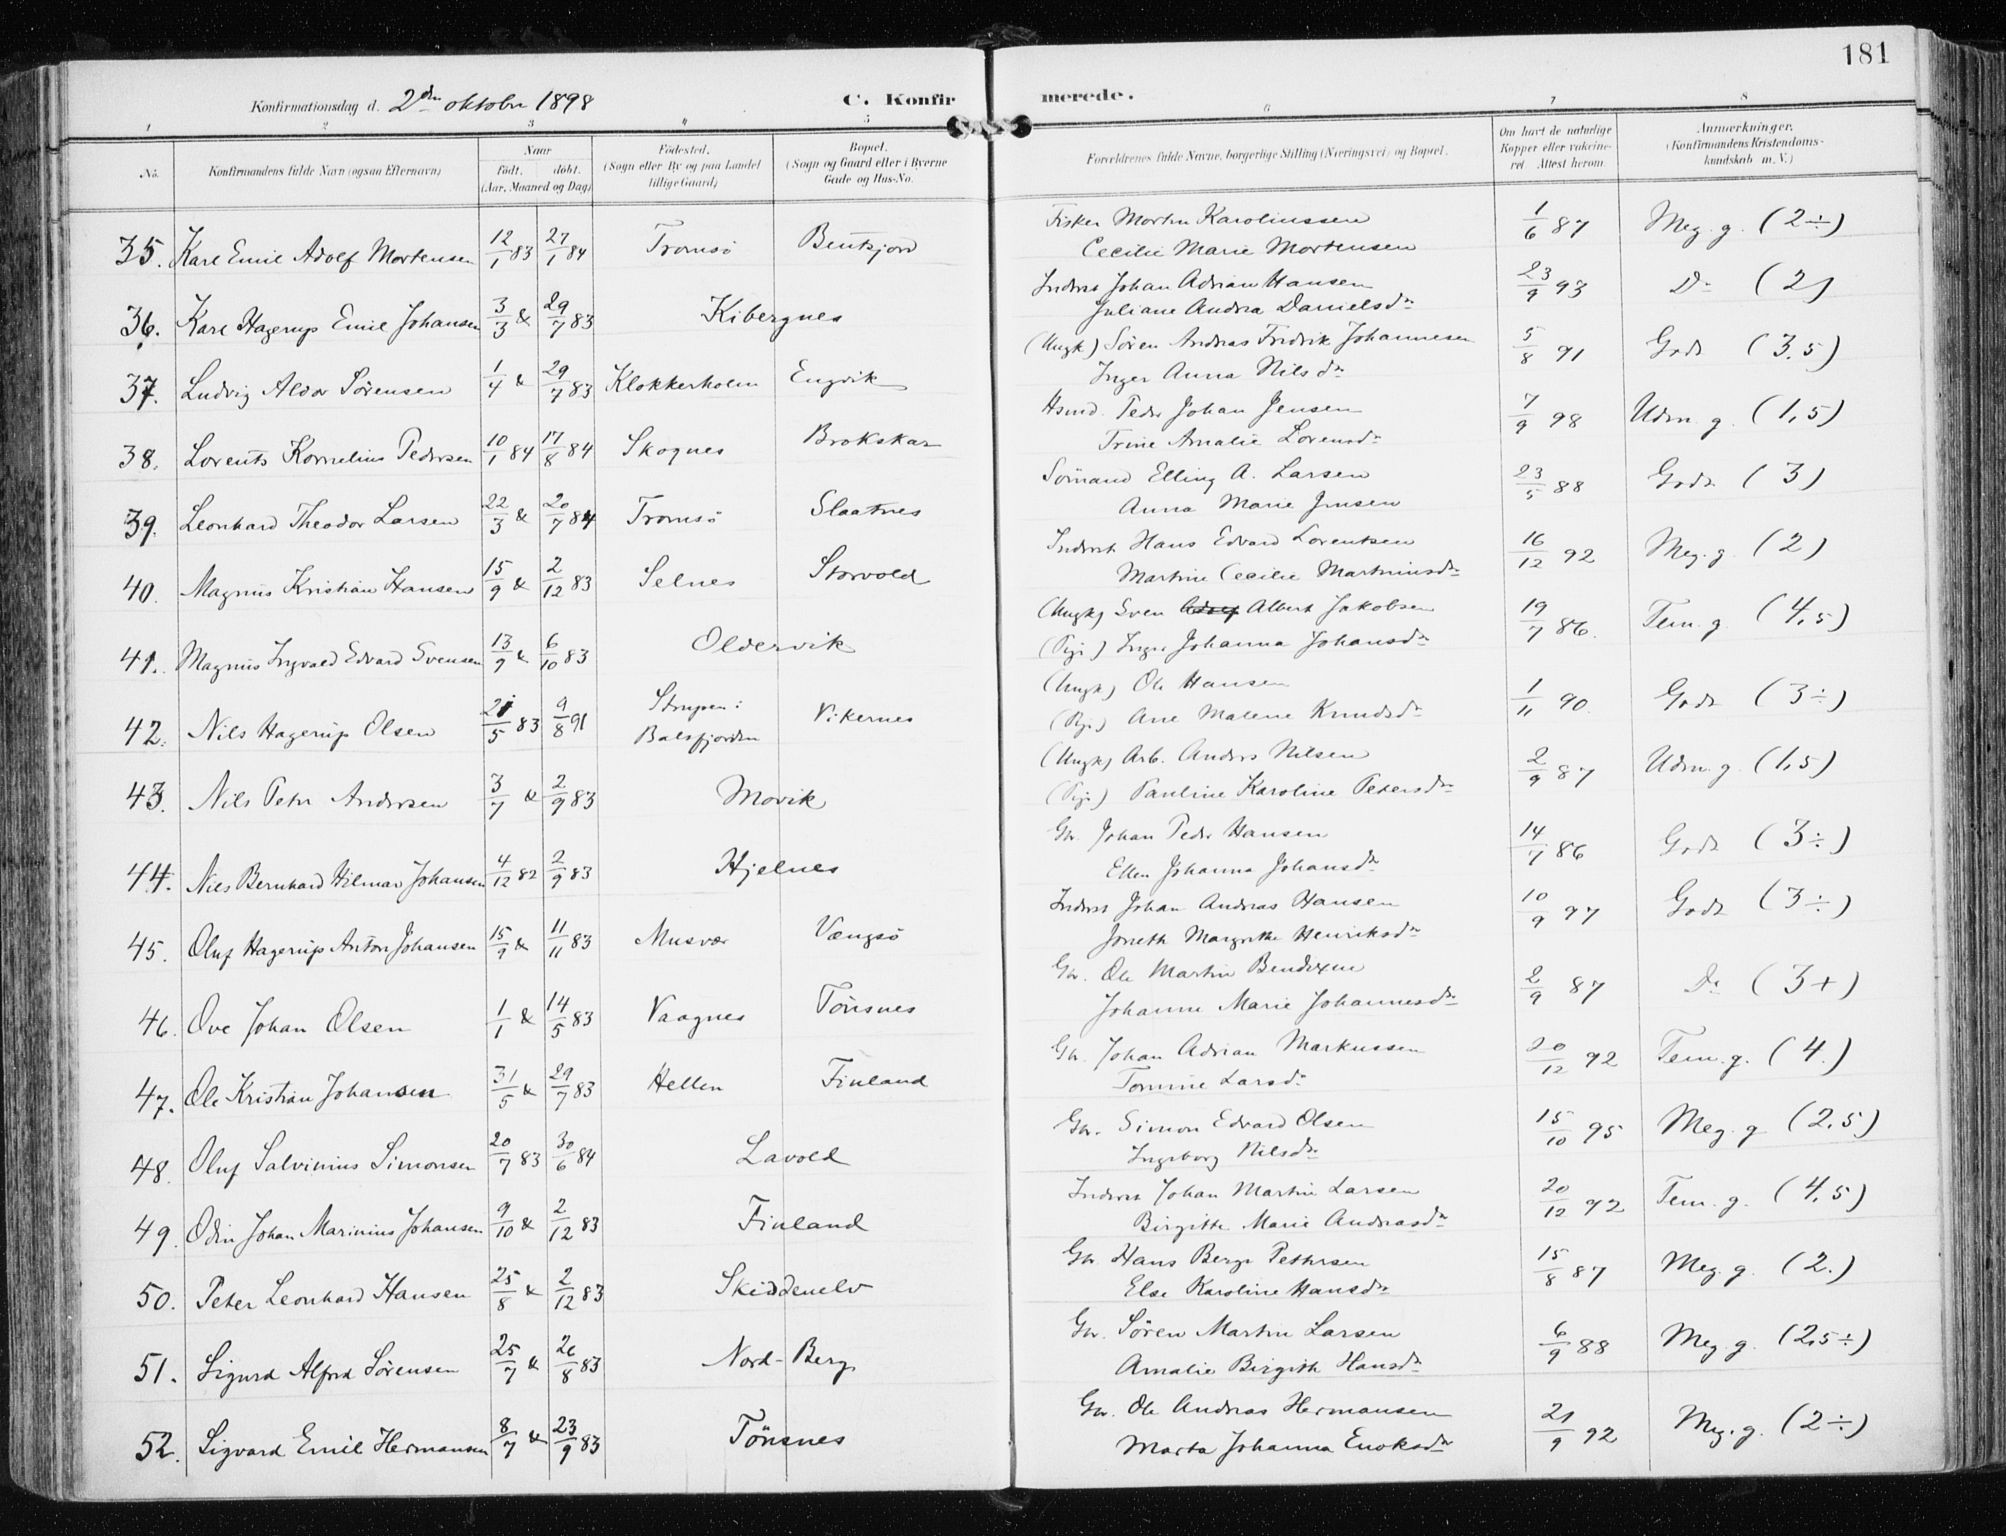 181
Konfirmationsdag d. 2den oktober 1898
C. Konfirmerede.
1 2 3 4 5 6 7 8
No. Konfirmandens fulde Navn (ogsaa Efternavn) Naar Født. døbt. (Aar, Maaned og Dag) Fødested. (Sogn eller By og paa Landet tillige Gaard) Bopæl. (Sogn og Gaard eller i Byerne Gade og Hus-No. Forældrenes fulde Navne, borgerlige Stilling (Næringsvei) og Bopæl. Om havt de naturlige Kopper eller vakcineret Attest herom. Anmærkninger. (Konfirmandens Kristendomskundskab m. V.)
35. Karl Emil Adolf Mortensen 12/1 83 27/1 84 Tromsö Bentsjord Fisker Morten Karolinssen 1/6 87 Meg. g. (2÷)
Cecilie Marie Mortensen
36. Karl Hagerup Emil Johansen 3/3 & 29/7 83 Kibergnes Inderst Johan Adrian Hansen 23/9 93 Do (2)
Juliane Andrea Danielsdr
37. Ludvig Aldor Sörensen 1/4 & 29/7 83 Klokkerholm Engvik (Ungk) Sören Andreas Fredrik Johannesen 5/8 91 Godt (3.5)
Inger Anna Nilsdr
38. Lorents Kornelius Pedersen 10/1 84 17/8 84 Skognes Brokskar Hsmd. Peder Johan Jensen 7/9 98 Udm. g. (1,5)
Trine Amalie Lorensdr
39. Leonhard Theodor Larsen 22/3 & 20/7 84 Tromsö Slaatnes Sömand Elling A. Larsen 23/5 88 Godt (3)
Anna Marie Jensen
40. Magnus Kristian Hansen 15/9 & 2/12 83 Selnes Storvold Inderst Hans Edvard Lorentsen 16/12 92 Meg. g. (2)
Martine Cecilie Martinusdr
41. Magnus Ingvald Edvard Svensen 13/9 & 6/10 83 Oldervik (Ungk) Sven Albert Jakobsen 19/7 86. Tem. g. (4,5)
(Pige) Inger Johanna Johansdr
42. Nils Hagerup Olsen 21/5 83 9/8 91 Strupen i Balsfjorden Vikernes (Ungk) Ole Hansen 1/11 90. Godt (3÷)
(Pige) Ane Malene Knudsdr
43. Nils Peter Andersen 3/7 & 2/9 83 Movik (Ungk) Arb. Anders Nilsen 2/9 87 Udm. g. (1,5)
(Pige) Pauline Karoline Pedersdr
44. Nils Bernhard Hilmar Johansen 4/12 82 2/9 83 Hjelnes Gbr. Johan Peder Hansen 14/7 86 Godt (3÷)
Ellen Johanna Johansdr
45. Oluf Hagerup Anton Johansen 15/9 & 11/11 83 Musvær Vængsö Inderst Johan Andreas Hansen 10/9 97 Godt (3÷)
Joneth Margrethe Henriksdr
46. Ove Johan Olsen 1/1 & 14/5 83 Vaagnes Tönsnes Gbr. Ole Martin Bendixen 2/9 87 Do (3+)
Johanne Marie Johannesdr
47. Ole Kristian Johansen 31/5 & 29/7 83 Hellen Finland Gbr. Johan Adrian Markussen 20/12 92 Tem. g. (4.)
Tomine Larsdr
48. Oluf Salvinius Simonsen 20/7 83 30/6 84 Lavold Gbr. Simon Edvard Olsen 15/10 95 Meg. g (2,5)
Ingeborg Nilsdr
49. Odin Johan Marinius Johansen 9/10 & 2/12 83 Finland Inderst Johan Martin Larsen 20/12 92 Tem. g. (4,5)
Birgitte Marie Andreasdr
50. Peter Leonhard Hansen 25/8 & 2/12 83 Skiddenelv Gbr Hans Berge Pettersen 15/8 87 Meg. g. (2.)
Else Karoline Hansdr
51. Sigurd Alfred Sörensen 25/7 & 26/8 83 Nord-Berge Gbr. Sören Martin Larsen 6/9 88 Meg. g. (2,5÷)
Amalie Birgith Hansdr
52. Sigvard Emil Hermansen 8/7 & 23/9 83 Tönsnes Gbr. Ole Andreas Hermansen 21/9 92 Meg. g. (2÷)
Marta Johanna Enoksdr